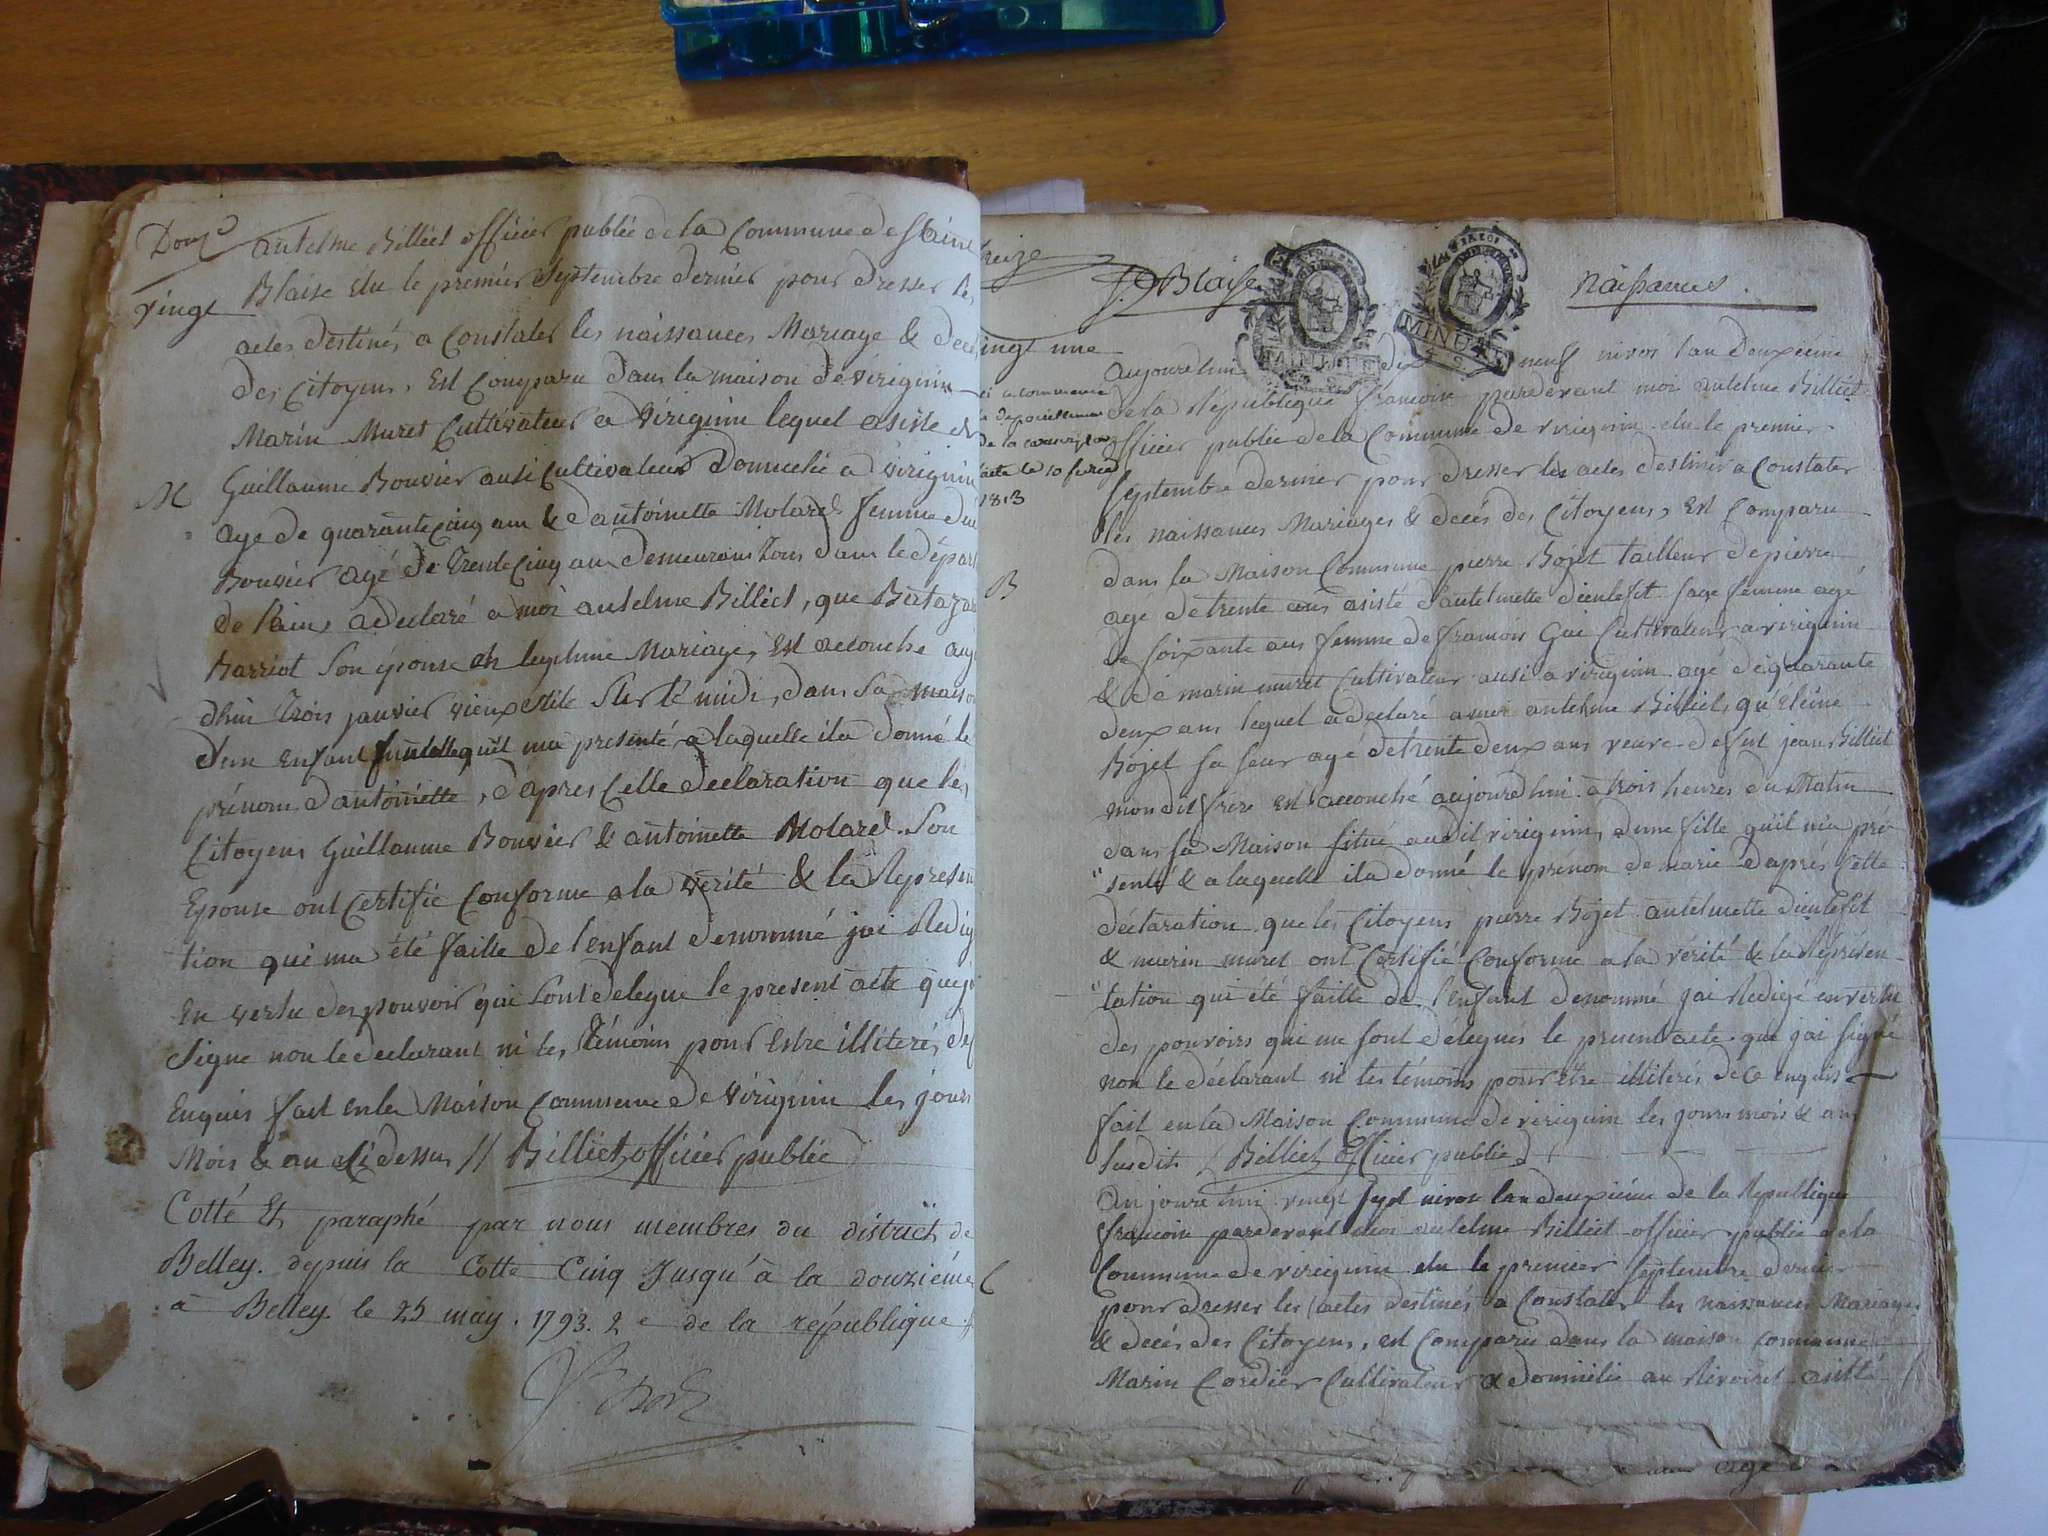 Douze
vingt
M
antelme Billiet officier public de la Commune de Saint
Blaise elu le premier Septembre dernier pour dresser les
actes destinés a Constater les naissances Mariage & decé
des Citoyens, Est Comparu dans la maison de virignin
Marin Muret Cultivateur a virignin lequel assisté de
Guillaume Bouvier ausi Cultivateur Domicilié a virignin
age de quarante cinq ans & d'antoinette Molard femme dud
Bouvier agé de trente cinq ans demeurans tous dans le départ
de l'ain, a declaré a moi antelme Billiet, que
Barriot son épouse en legitime Mariage, Est accouche auj
dhui trois janvier vieux stile sur le midi, dans sa maison
d'un enfant ma presenté, a laquelle il a donné le
prénom d'antoinette, d'apres Celle declaration que les
Citoyens Guillaume Bouvier & antoinette Molard. Son
Epouse ont Certifié Conforme a la verité & la Represen
tion qui ma été faitte de l'enfant denommé jai Redig
En vertu des pouvoir qui sont delegue le present acte que j
signe non le declarant ni les témoins pour Estre illiteré, de
Enquis fait en la Maison Commune de virignin les jours
Mois & an Ci dessus // Billiet officier public
Cotté Et paraphé par nous membres du district de
Belley. depuis la Cotte Cinq jusqu'à la douzième
a Belley le 25 may. 1793. 2e de la république
treize
St Blaise
MINUTE
naissances.
vingt une
de la
faite le 10
1813
B
C
aujourdhui dix neuf nivos l'an deuxieme
de la République francoise pardevant moi antelme Billiet
officier public de la Commune de virignin elu le premier
septembre dernier pour dresser les actes destinés a Constater
les naissances Mariages & decés des Citoyens, Est Comparu
dans la Maison Commune pierre Bojet tailleur de pierre
agé de trente ans asisté d'antelmette dieulefit sage femme agé
de soixante ans femme de francois Gui Cultivateur a virignin
& de marin muret Cultivateur ausi a virignin agé de quarante
deux ans lequel a declaré a moi antelme Billiet, qu'
Bojet sa seur agé de trente deux ans veuve de feu jean Billiet
mon dit frére est accouché aujourdhui à trois heures du Matin
dans sa Maison situé audit virignin, d'une fille qu'il m'a pré
senté & a laquelle il a donné le prenom de marie d'aprés cette
déclaration que les Citoyens pierre Bojet antelmette dieulefit
& marin muret ont Certifié Conforme a la vérité & la Représen-
tation qui été faitte de l'enfant denommé jai Redigé en vertu
des pouvoirs qui me sont delegués le present acte que jai signé
non le déclarant ni les témoins pour étre illiterés de ce enquis
fait en la Maison Commune de virignin les jours mois & an
susdits / Billiet officier public
Aujourdhui vingt sept nivos lan deuxiéme de la République
francoise pardevant moi antelme Billiet officier public de la
Commune de virignin elu le premier septembre dernier
pour dresser les actes destinés a Constater les naissances Mariages
& decés des Citoyens, est Comparu dans la maison commune
Marin Cordier Cultivateur domicilié au Revoiret asisté
age